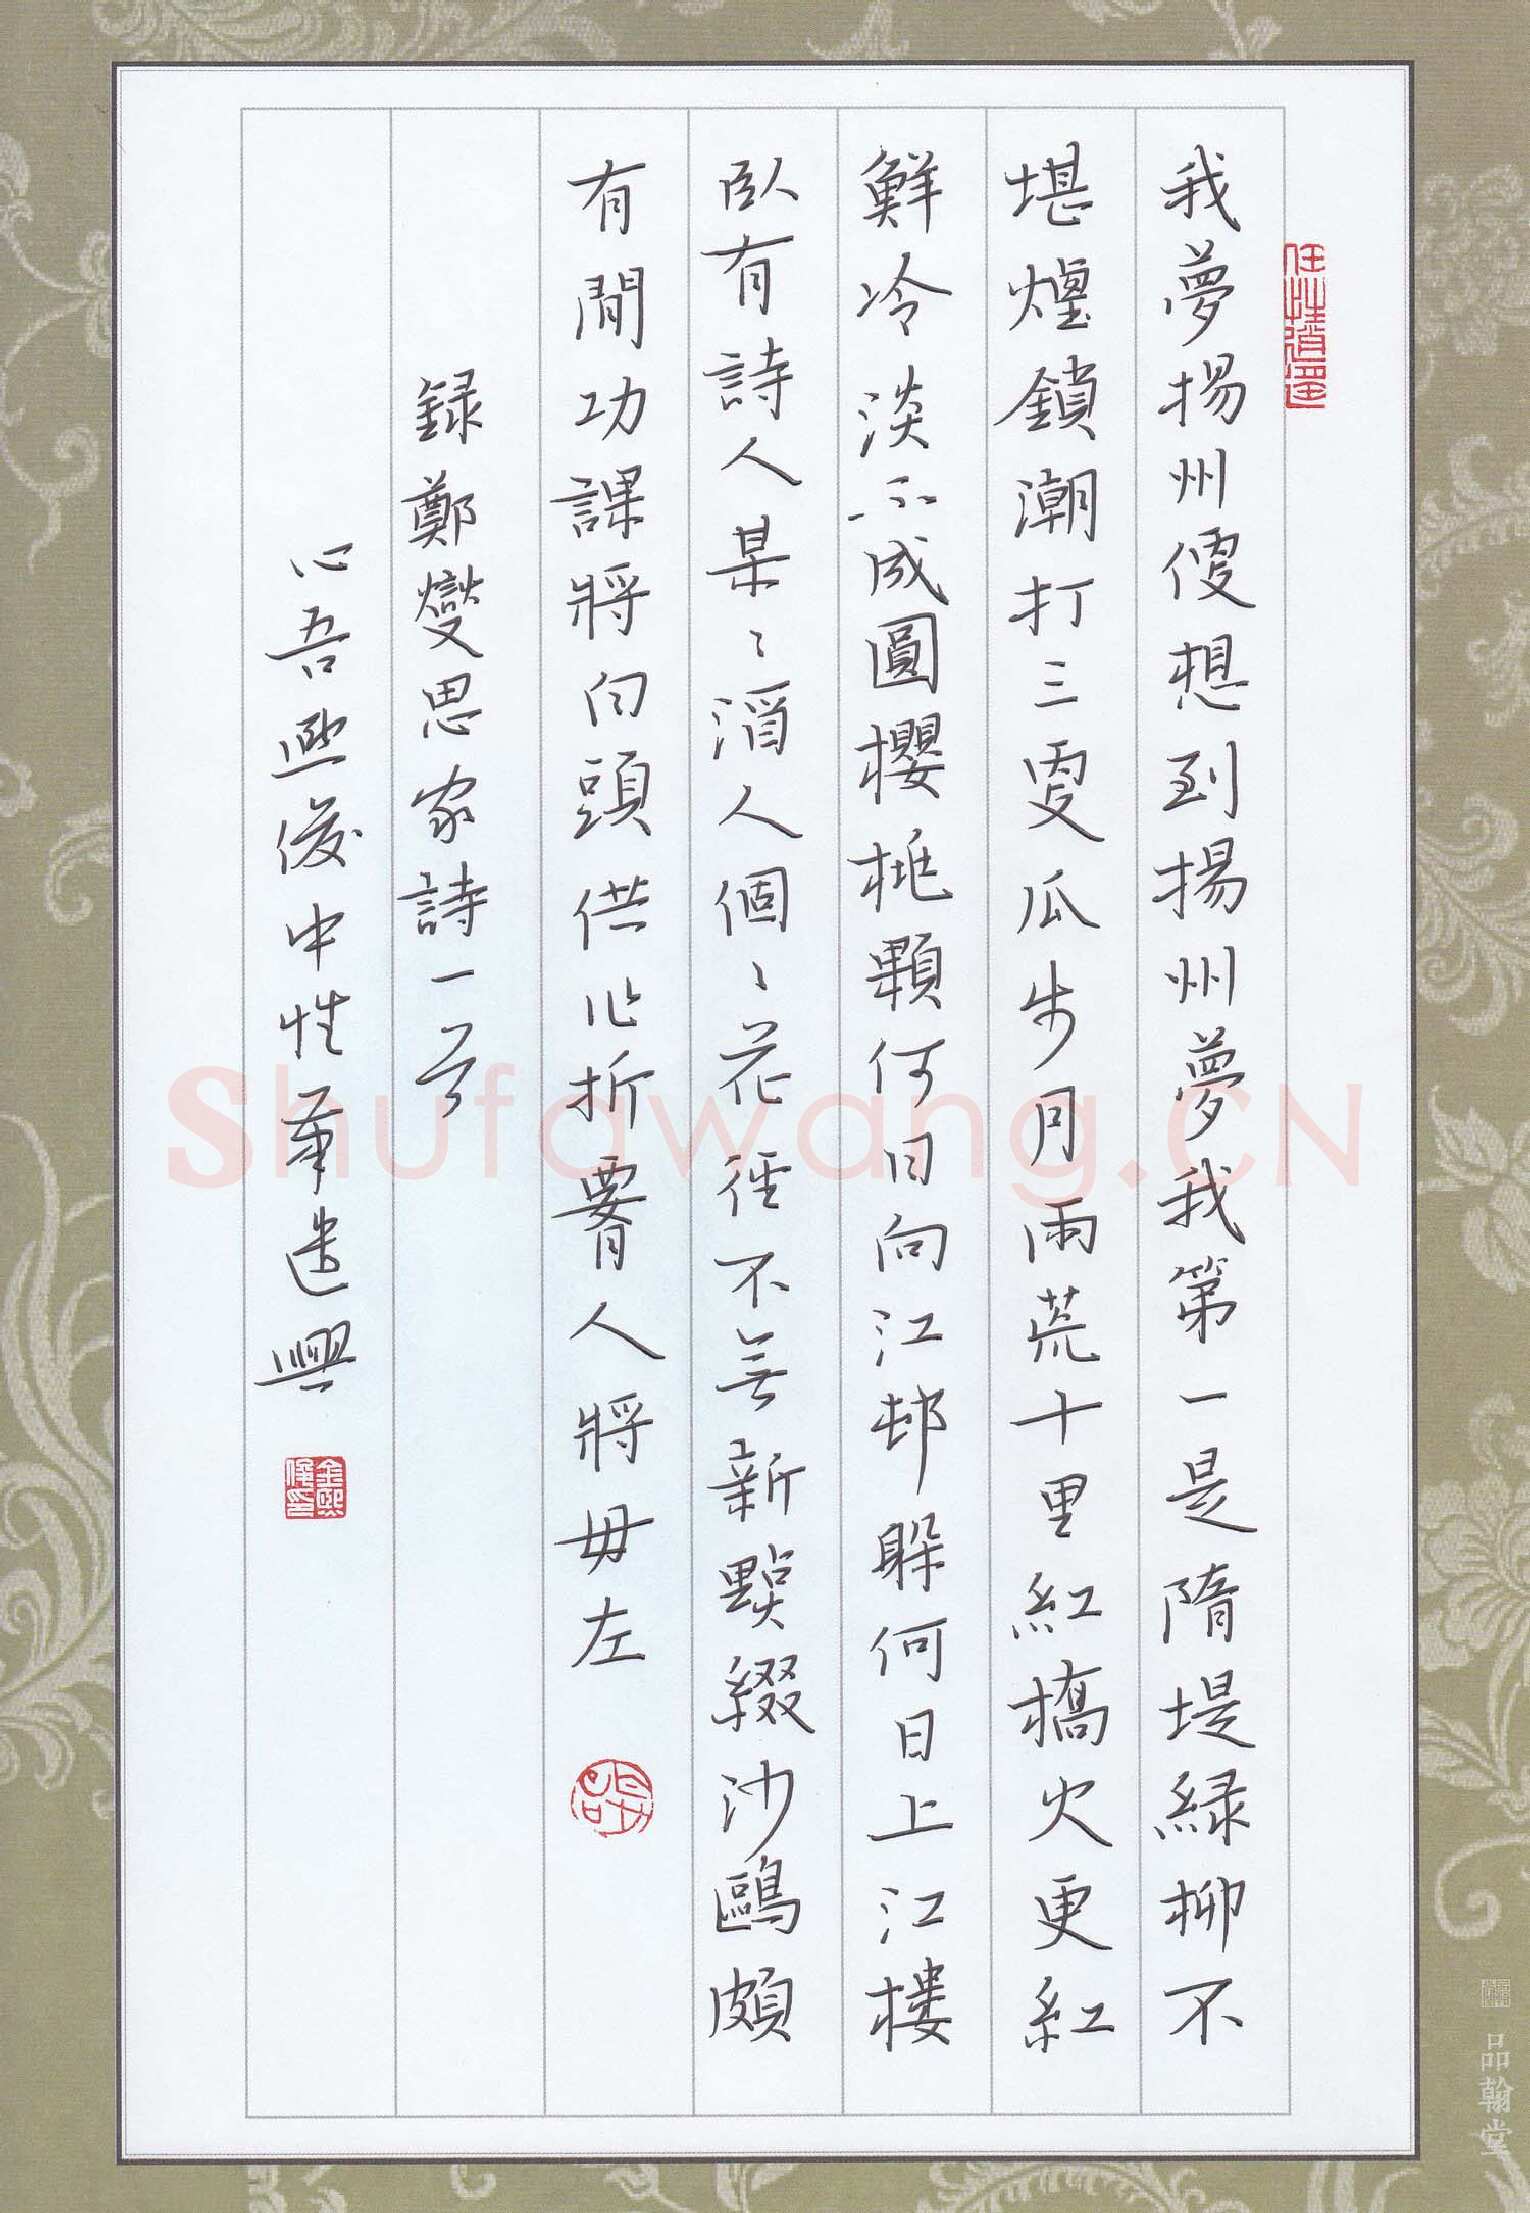 我夢揚州便想到揚州夢我第一是隋堤綠柳不
堪煙鎖潮打三更瓜步月雨荒十里紅橋火更紅
鮮冷淡不成圓櫻桃顆何日向江邨躲何日上江樓
臥有詩人某〻酒人個〻花徑不無新點綴沙鷗頗
有閒功課將白頭供作折腰人將毋左
錄鄭燮思家詩一首
心吾熙俊中性筆遣興
品翰堂
Shufawang.CN